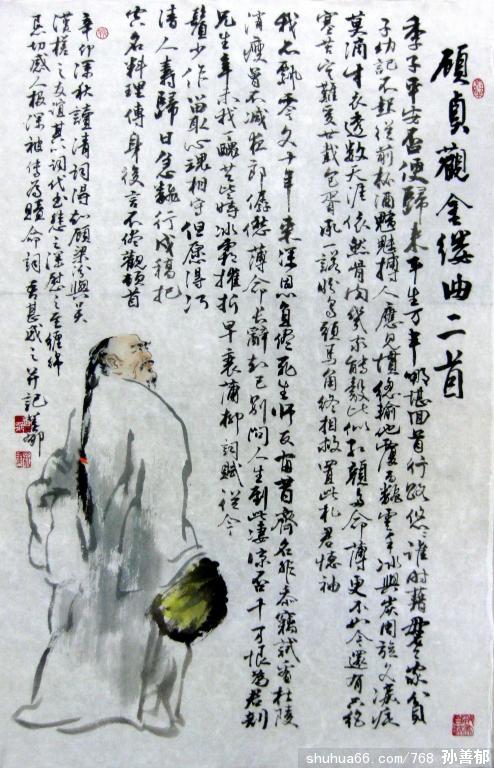 顧貞觀金縷曲二首
季子平安否便歸来平生万事哪堪回首行路悠悠誰慰藉母老家貧
子幼記不起從前杯酒魑魅搏人應見慣總輸他覆雨飜雲手冰與雪周旋久淚痕
莫滴牛衣透數天涯依然骨肉幾家能彀比似紅顏多命薄更不如今還有只絶
塞苦寒難受廿載包胥承一諾盼烏頭馬角終相救置此札君懷袖
我亦飘零久十年來深恩負儘死生師友宿昔齊名非忝竊試看杜陵
消瘦曾不减夜郎僝僽薄命長辭知己別問人生到此凄凉否千万恨為君剖
兄生辛未我丁丑共此時冰霜摧折早衰蒲柳詞賦從今
須少作留取心魂相守但愿得河
清人壽歸日急飜行戍稿把
空名料理傳身後言不儘觀頓首
辛卯深秋讀清詞得知顧梁汾與吴
漢槎之友誼其詞代書悲之深慰之至纏綿
恳切感人极深被傳为贖命詞甚感之并記善郁
shuhua66.com/768 孙善郁